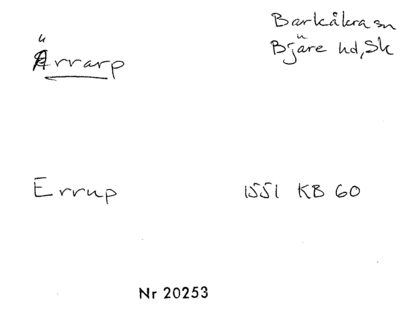 Ärrarp
Barkåkra sn
Bjäre hd, Sk
Errup 1551 KB 60
Nr 20253